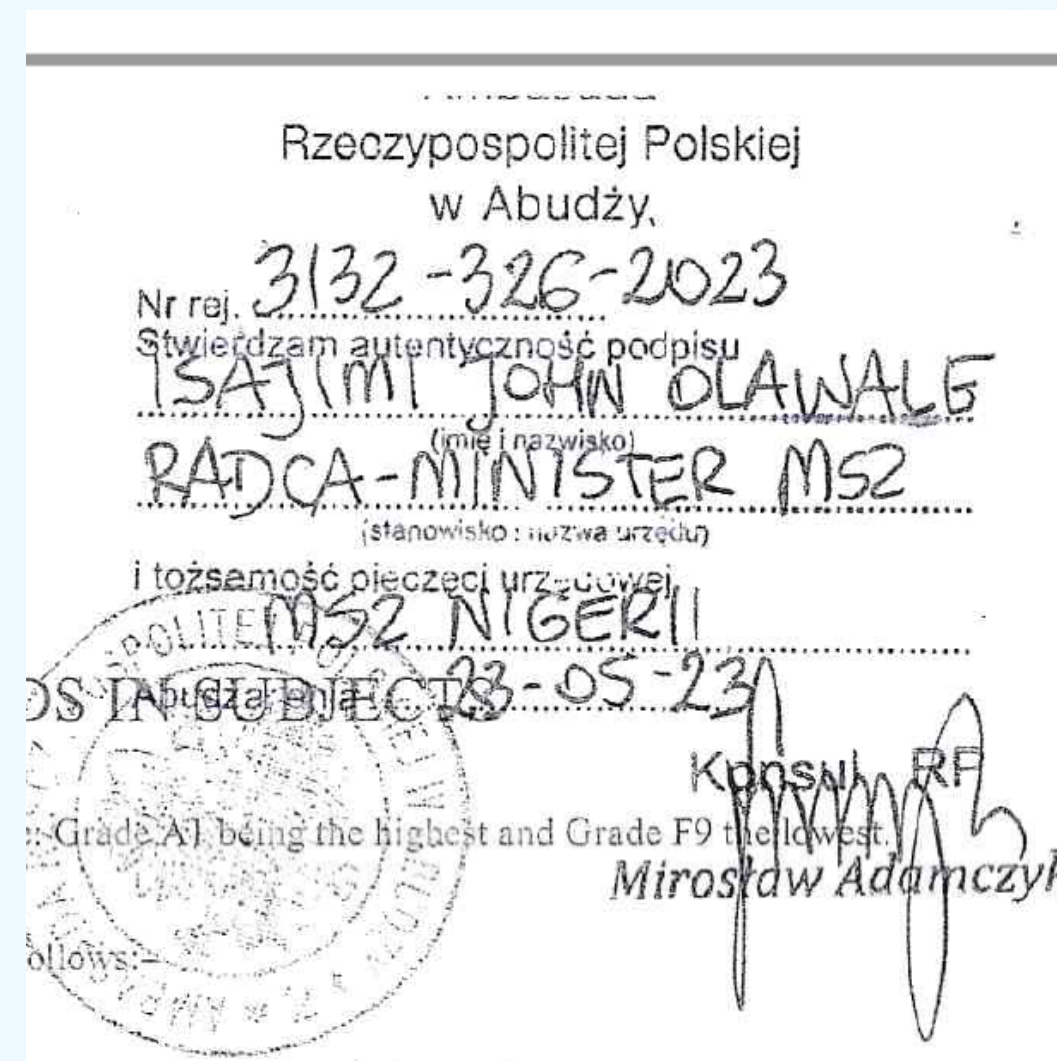 Rzeczypospolitej Polskiej
w Abudży,
Nr rej. 3132-326-2023
Stwierdzam autentyczność podpisu
ISAJIMI JOHN OLAWALE
(imię i nazwisko)
RADCA-MINISTER MSZ
(stanowisko i nazwa urzędu)
i tożsamość pieczęci urzędowej
MSZ NIGERII
Abudża dnia 23-05-23
DS IN SUBJECTS
Konsul RP
e: Grade A1 being the highest and Grade F9 the lowest.
Mirosław Adamczyk
ollows:-